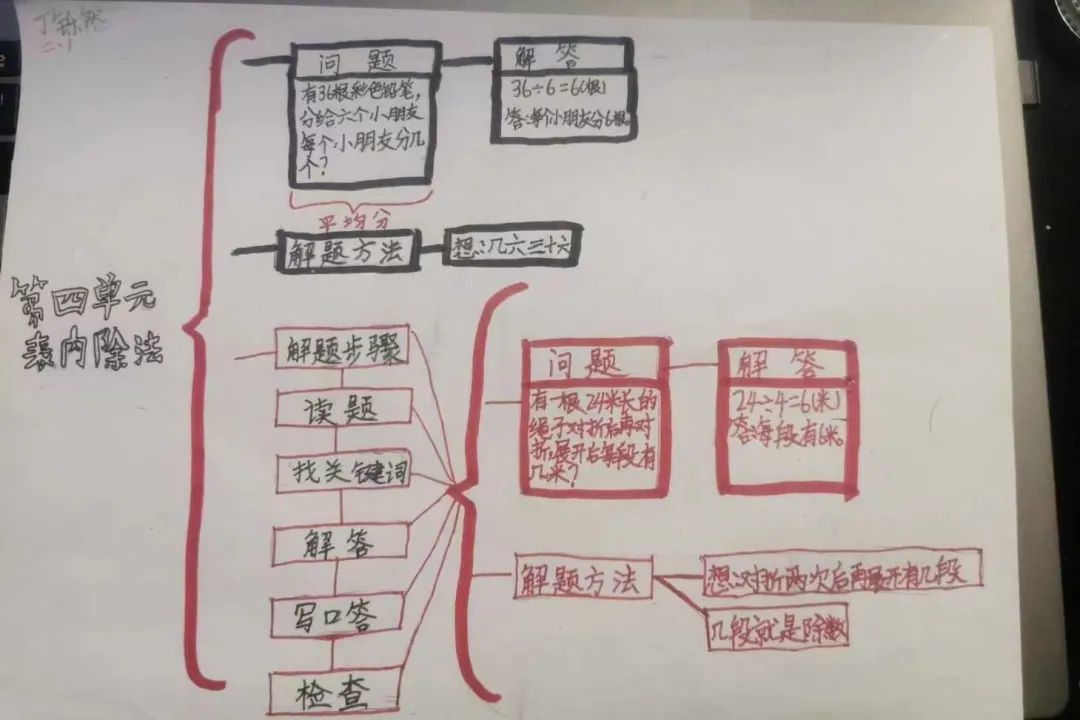 二、1
第四单元
表内除法
问题
有36根彩色铅笔，
分给六个小朋友
每个小朋友分几
个？
解答
36÷6=6(根)
答:每个小朋友分6根。
平均分
解题方法
想:几六三十六
解题步骤
读题
找关键词
解答
写口答
检查
问题
有一根24米长的
绳子对折后再对
折,展开后每段有
几米?
解答
24÷4=6(米)
答:每段有6米。
解题方法
想:对折两次后再展开有几段
几段就是除数